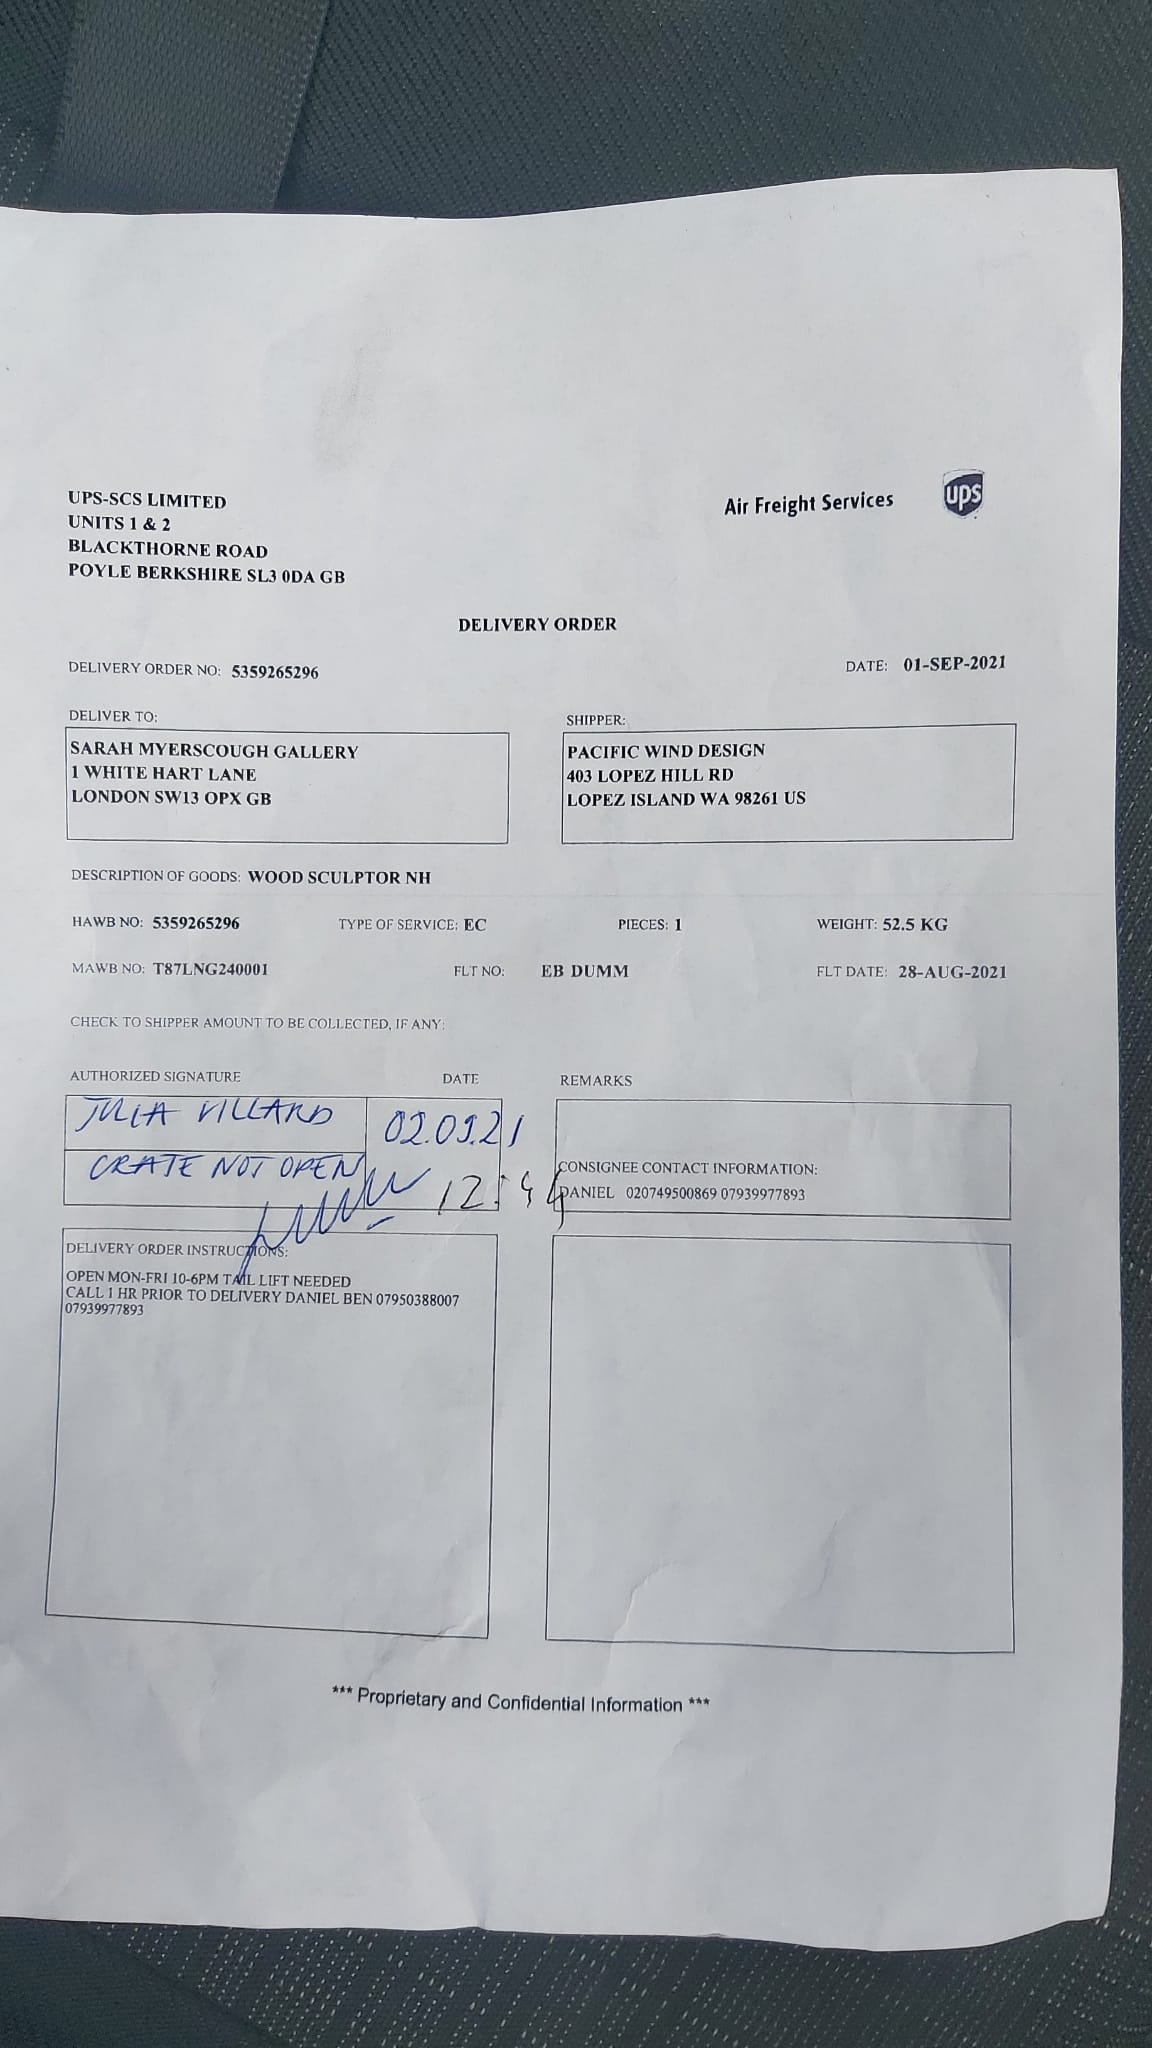 UPS-SCS LIMITED
UNITS 1 & 2
BLACKTHORNE ROAD
POYLE BERKSHIRE SL3 0DA GB
Air Freight Services
ups
DELIVERY ORDER
DELIVERY ORDER NO: 5359265296
DATE: 01-SEP-2021
DELIVER TO:
SARAH MYERSCOUGH GALLERY
1 WHITE HART LANE
LONDON SW13 OPX GB
SHIPPER:
PACIFIC WIND DESIGN
403 LOPEZ HILL RD
LOPEZ ISLAND WA 98261 US
DESCRIPTION OF GOODS: WOOD SCULPTOR NH
HAWB NO: 5359265296 TYPE OF SERVICE: EC PIECES: 1 WEIGHT: 52.5 KG
MAWB NO: T87LNG240001 FLT NO: EB DUMM FLT DATE: 28-AUG-2021
CHECK TO SHIPPER AMOUNT TO BE COLLECTED, IF ANY:
AUTHORIZED SIGNATURE DATE
JULIA VILLARD 02.09.21
CRATE NOT OPEN
12:44
REMARKS
CONSIGNEE CONTACT INFORMATION:
DANIEL 020749500869 07939977893
DELIVERY ORDER INSTRUCTIONS:
OPEN MON-FRI 10-6PM TAIL LIFT NEEDED
CALL 1 HR PRIOR TO DELIVERY DANIEL BEN 07950388007
07939977893
*** Proprietary and Confidential Information ***